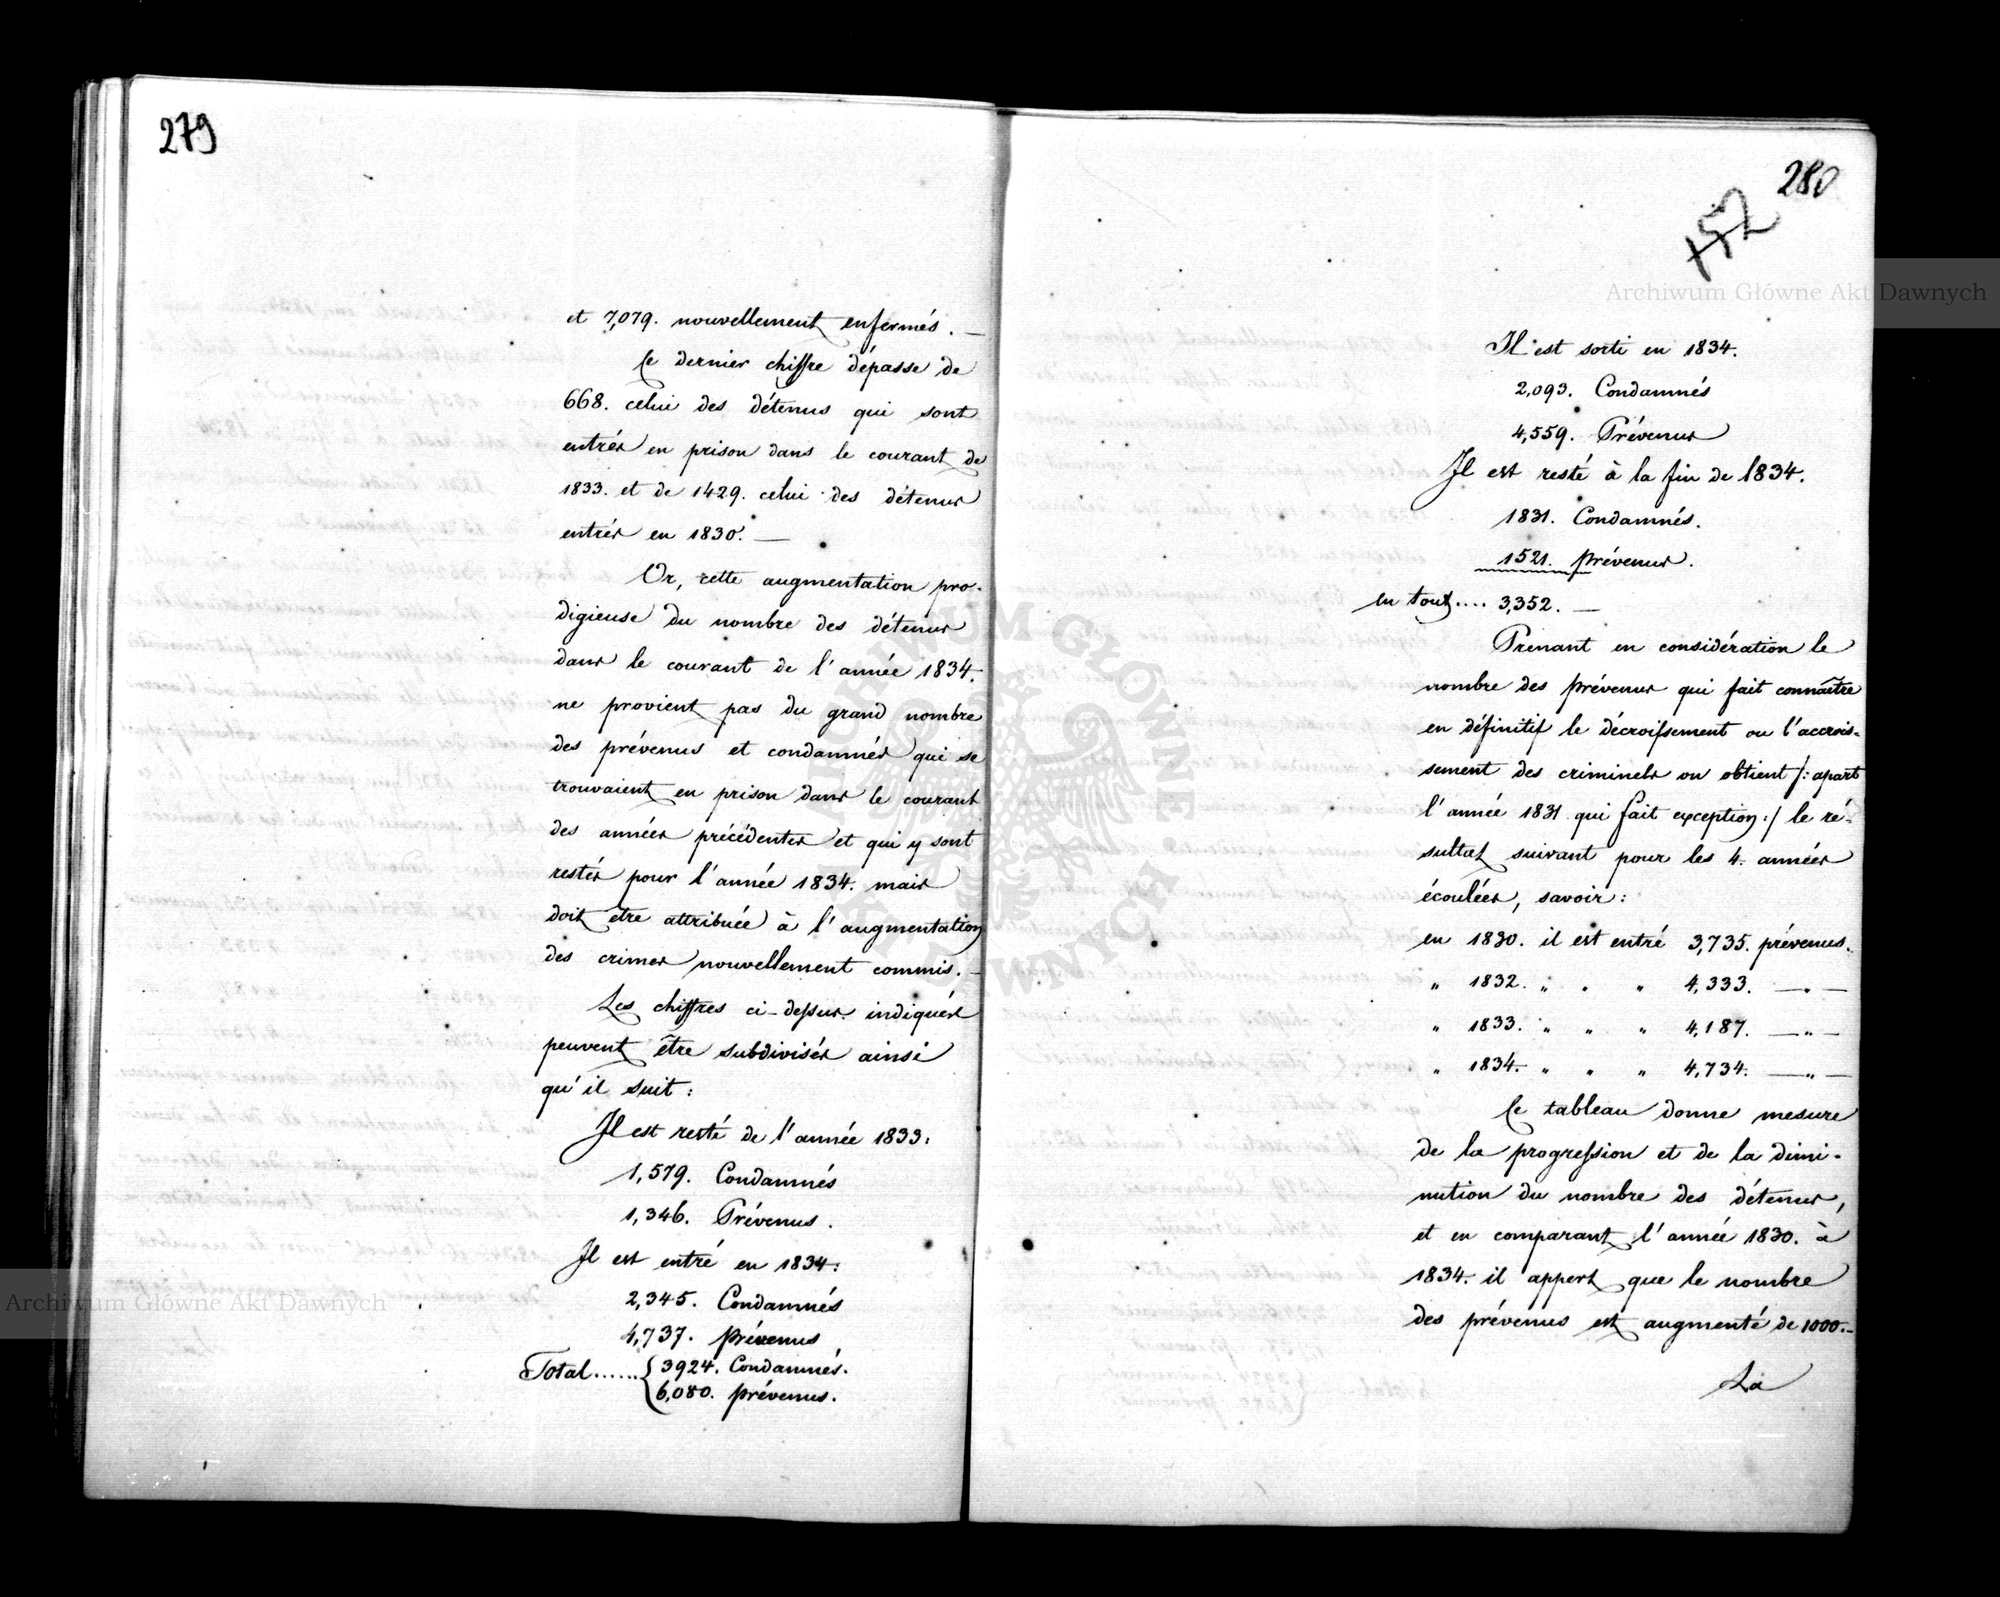 279
et 7,079. nouvellement enfermés. —
Ce dernier chiffre dépasse de
668. celui des détenus qui sont
entrés en prison dans le courant de
1833. et de 1429. celui des détenus
entrés en 1830. —
Or, cette augmentation pro-
digieuse du nombre des détenus
dans le courant de l'année 1834.
ne provient pas du grand nombre
des prévenus et condamnés qui se
trouvaient en prison dans le courant
des années précédentes et qui y sont
restés pour l'année 1834. mais
doit être attribuée à l'augmentation
des crimes nouvellement commis. —
Les chiffres ci-dessus indiqués
peuvent être subdivisés ainsi
qu'il suit:
Il est resté de l'année 1833:
1,579. Condamnés
1,346. Prévenus.
Il est entré en 1834:
2,345. Condamnés
4,737. prévenus
Total...... { 3924. Condamnés.
6,080. prévenus.
280
152
Il est sorti en 1834.
2,093. Condamnés
4,559. Prévenus
Il est resté à la fin de 1834.
1831. Condamnés.
1521. prévenus.
en tout.... 3,352. —
Prenant en considération le
nombre des prévenus qui fait connaître
en définitif le décroissement ou l'accrois-
sement des criminels on obtient /: apart
l'année 1831 qui fait exception :/ le ré-
sultat suivant pour les 4. années
écoulées, savoir:
en 1830. il est entré 3,735. prévenus.
" 1832. " " " 4,333. —"—
" 1833. " " " 4,187. —"—
" 1834. " " " 4,734. —"—
Ce tableau donne mesure
de la progression et de la dimi-
nution du nombre des détenus,
et en comparant l'année 1830. à
1834. il appert que le nombre
des prévenus est augmenté de 1000. —
La
Archiwum Główne Akt Dawnych
Archiwum Główne Akt Dawnych
ARCHIWUM GŁÓWNE AKT DAWNYCH